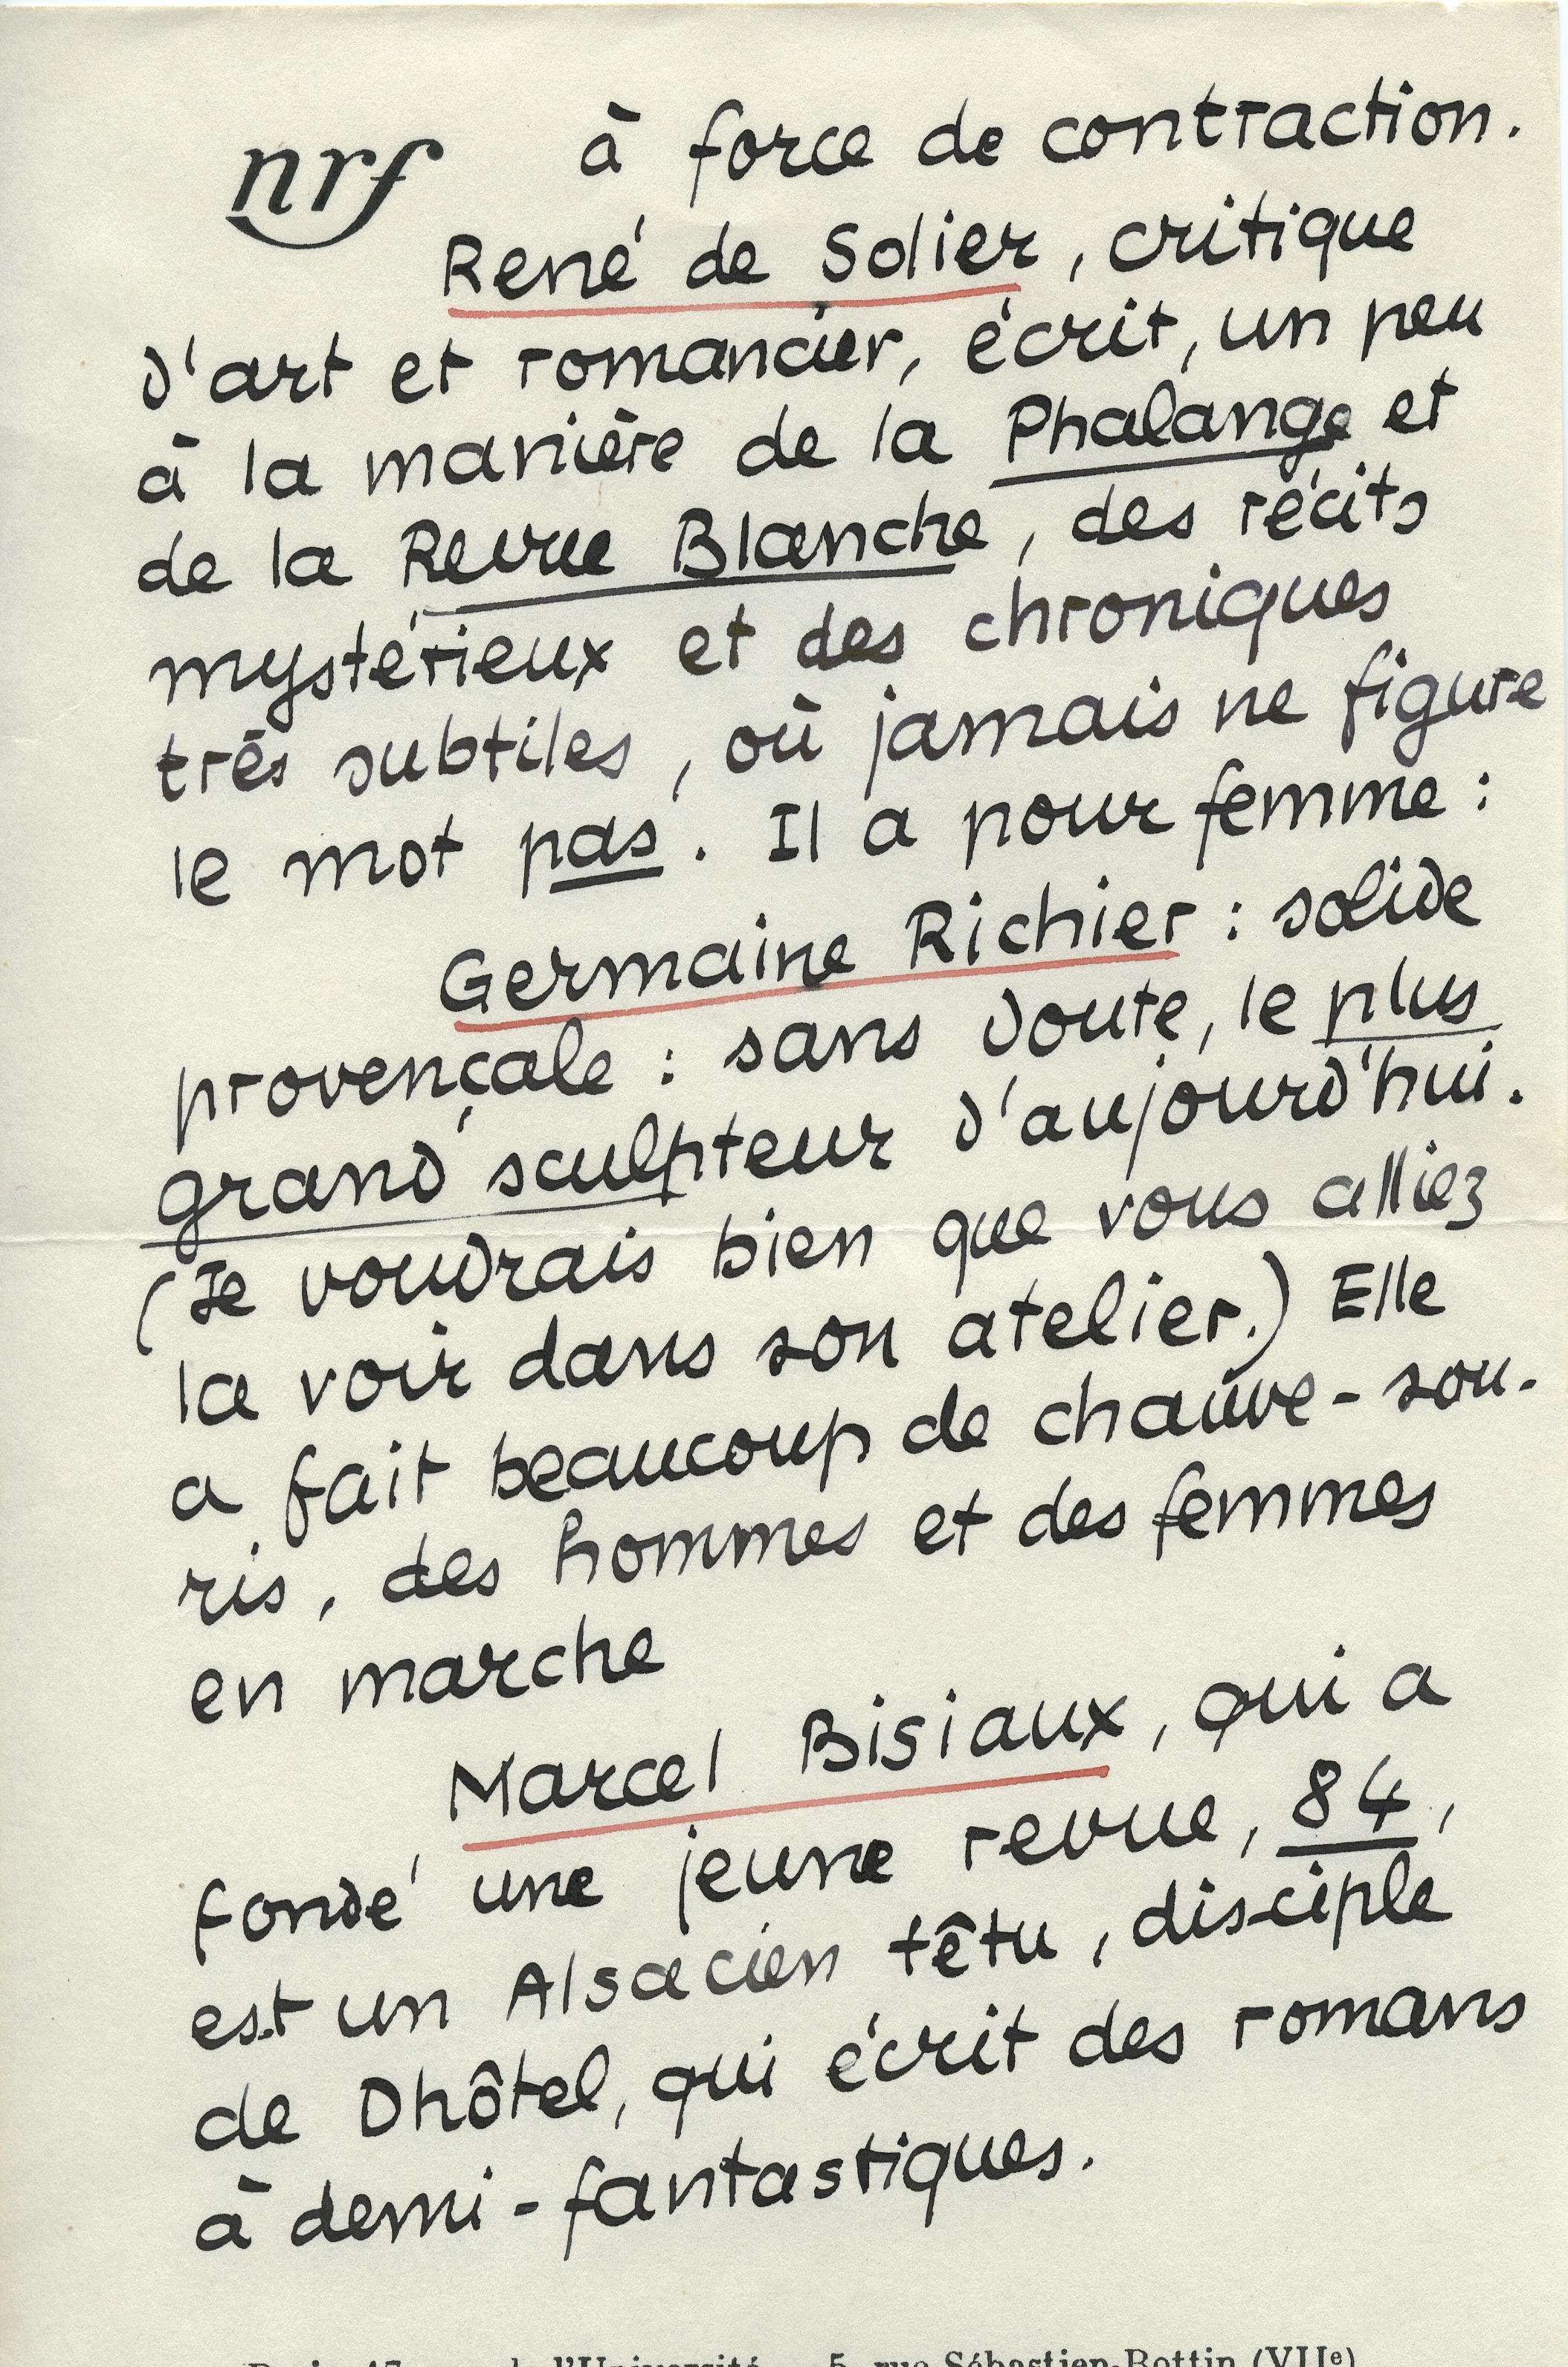 nrf à force de contraction.
René de Solier, critique
d'art et romancier, écrit, un peu
à la manière de la Phalange et
de la Revue Blanche, des récits
mystérieux et des chroniques
très subtiles, où jamais ne figure
le mot pas. Il a pour femme :
Germaine Richier : solide
provençale : sans doute, le plus
grand sculpteur d'aujourd'hui.
(Je voudrais bien que vous alliez
la voir dans son atelier.) Elle
a fait beaucoup de chauve-sou-
ris, des hommes et des femmes
en marche
Marcel Bisiaux, qui a
fondé une jeune revue, 84,
est un Alsacien têtu, disciple
de Dhôtel, qui écrit des romans
à demi-fantastiques.
de l'Université 5, rue Sébastien-Bottin (VIIe)